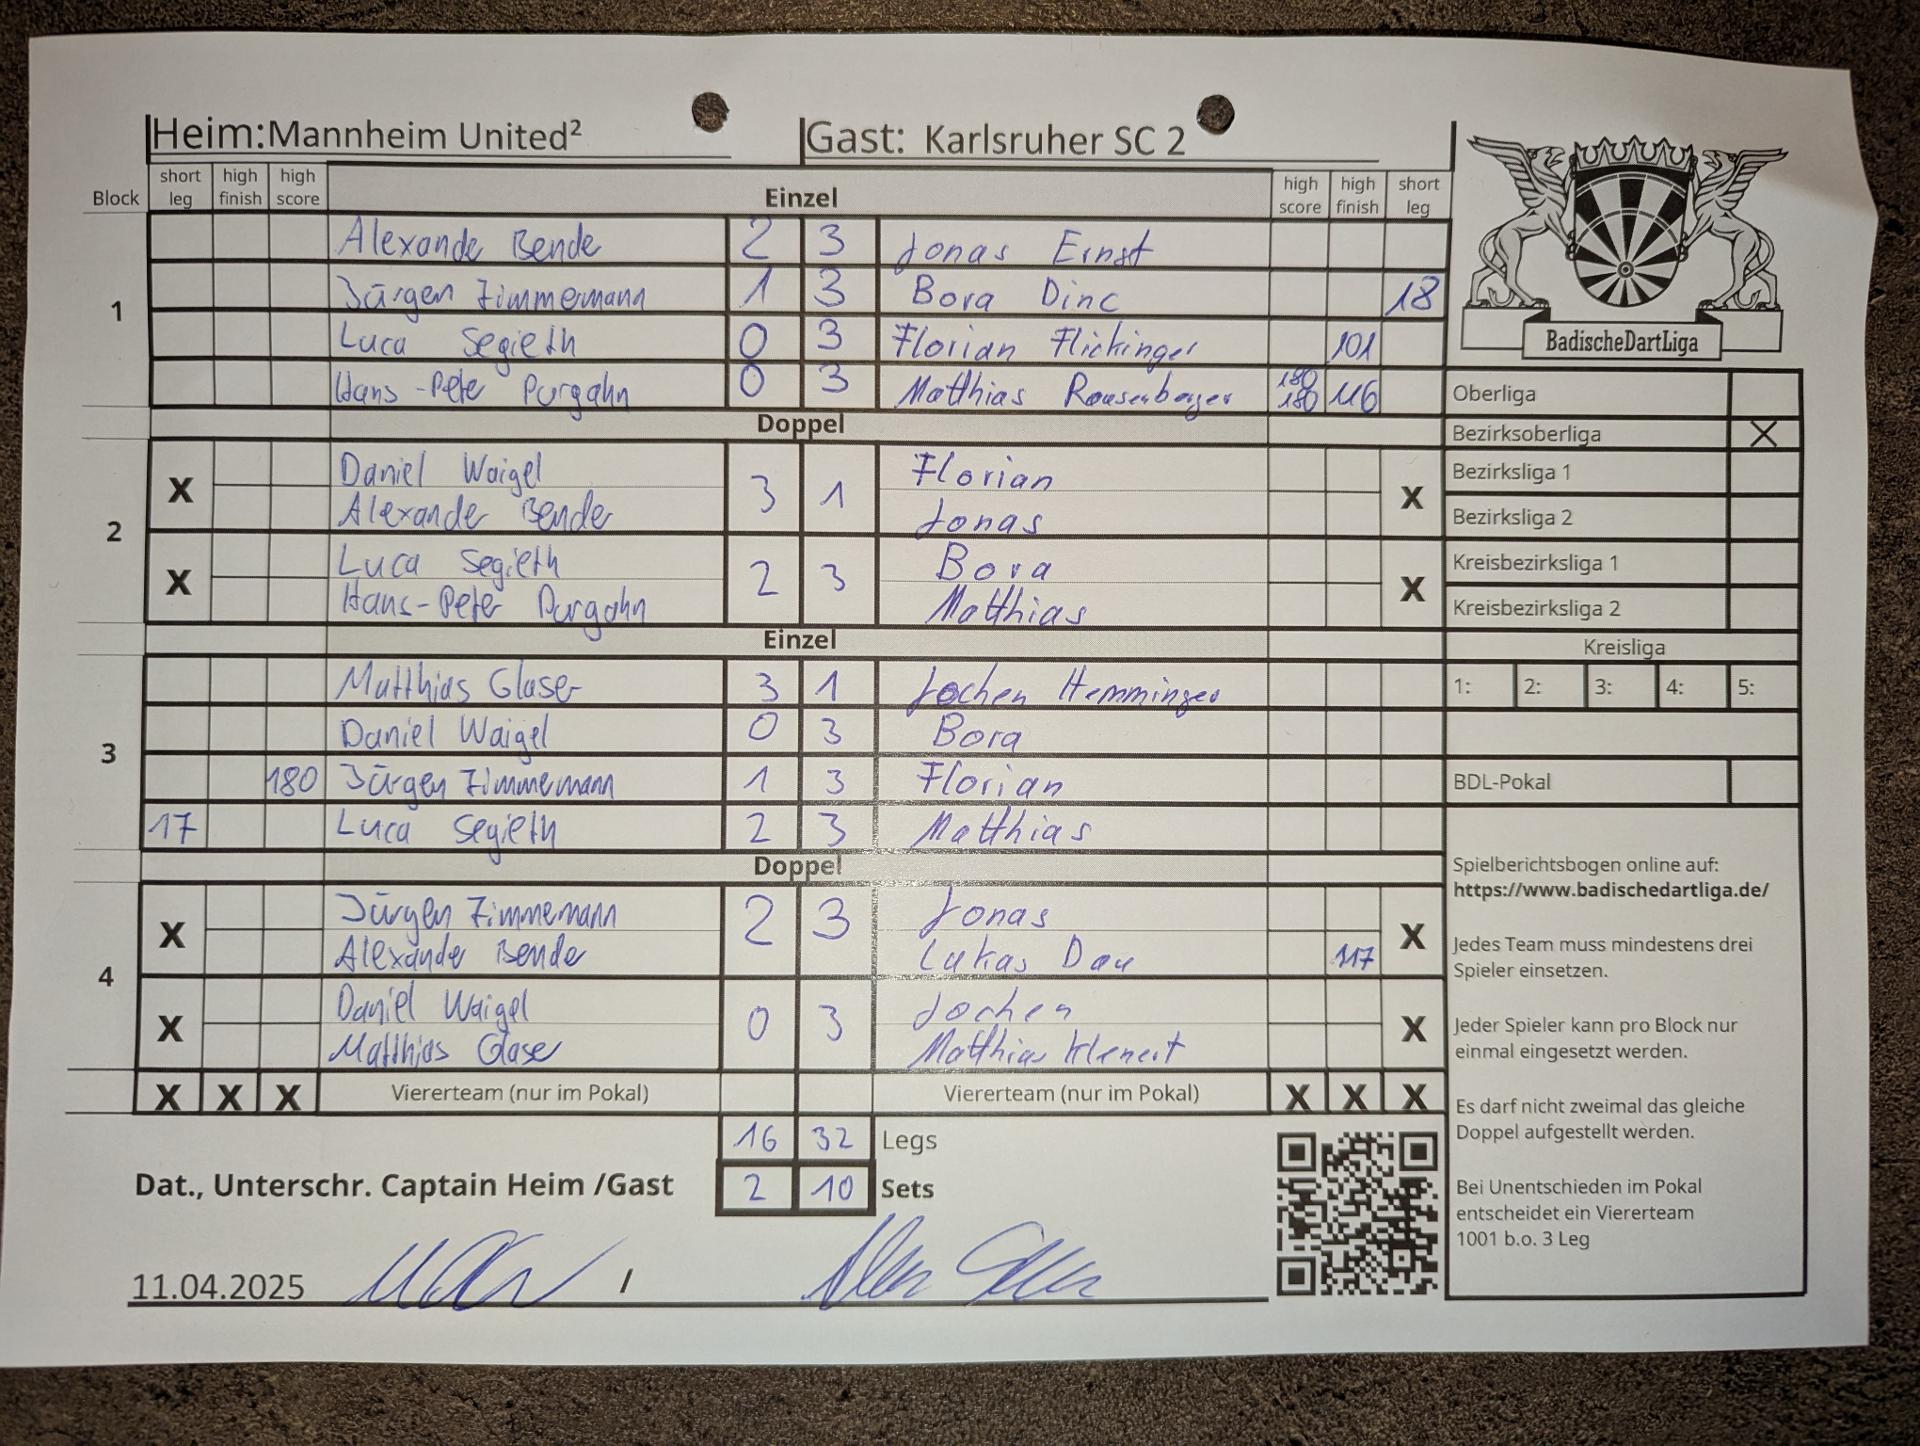 Heim: Mannheim United² Gast: Karlsruher SC 2
Block short leg high finish high score Einzel high score high finish short leg
1
Alexande Bende 2 3 Jonas Ernst
Jürgen Zimmermann 1 3 Bora Dinc 18
Luca Segieth 0 3 Florian Flickinger 101
Hans-Peter Purgahn 0 3 Matthias Rausenberger 180 180 116
Doppel
2
X Daniel Waigel 3 1 Florian X
Alexander Bende Jonas
X Luca Segieth 2 3 Bora X
Hans-Peter Purgahn Matthias
Einzel
3
Matthias Glaser 3 1 Jochen Hemminger
Daniel Waigel 0 3 Bora
180 Jürgen Zimmemann 1 3 Florian
17 Luca Segieth 2 3 Matthias
Doppel
4
X Jürgen Zimmemann 2 3 Jonas X
Alexander Bende Lukas Dau 117
X Daniel Waigel 0 3 Jochen X
Matthias Glaser Matthias Klenert
X X X Vierertem (nur im Pokal) Viererteam (nur im Pokal) X X X
16 32 Legs
Dat., Unterschr. Captain Heim /Gast 2 10 Sets
11.04.2025 /
BadischeDartLiga
Oberliga
Bezirksoberliga X
Bezirksliga 1
Bezirksliga 2
Kreisbezirksliga 1
Kreisbezirksliga 2
Kreisliga
1: 2: 3: 4: 5:
BDL-Pokal
Spielberichtsbogen online auf:
https://www.badischedartliga.de/
Jedes Team muss mindestens drei
Spieler einsetzen.
Jeder Spieler kann pro Block nur
einmal eingesetzt werden.
Es darf nicht zweimal das gleiche
Doppel aufgestellt werden.
Bei Unentschieden im Pokal
entscheidet ein Viererteam
1001 b.o. 3 Leg